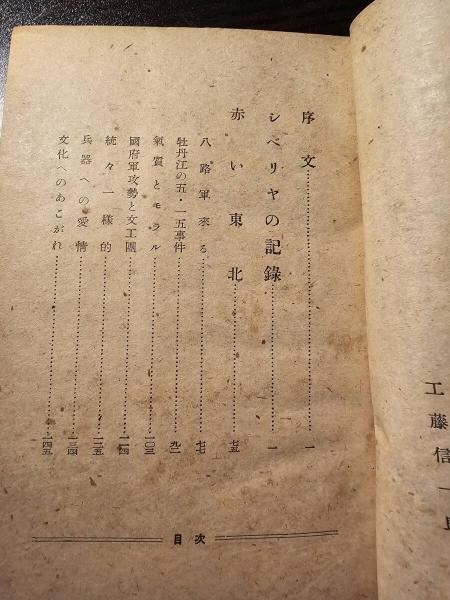 工藤信一
序文……………………一
シベリヤの記錄……………………一
赤い東北……………………七五
八路軍來る……………………七七
牡丹江の五・一五事件……………………九二
氣質とモラル……………………一〇三
國府軍攻勢と文工團……………………一一四
統々一樣的……………………一二五
兵器への愛情……………………一三四
文化へのあこがれ……………………一四五
目次